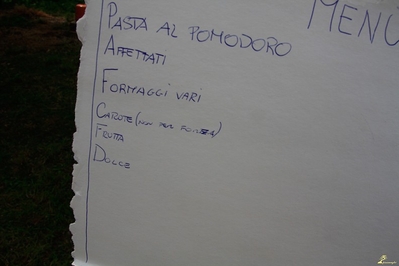 MENU
PASTA AL POMODORO
AFFETTATI
FORMAGGI VARI
CAROTE (NON PER
FRUTTA
DOLCE